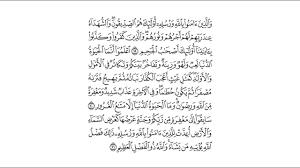 وَالَّذِينَ ءَامَنُوا بِاللَّهِ وَرُسُلِهِ أُولَٰئِكَ هُمُ الصِّدِّيقُونَ وَالشُّهَدَاءُ
عِندَ رَبِّهِمْ لَهُمْ أَجْرُهُمْ وَنُورُهُمْ وَالَّذِينَ كَفَرُوا وَكَذَّبُوا
بِـَٔايَٰتِنَا أُولَٰئِكَ أَصْحَٰبُ الْجَحِيمِ اعْلَمُوا أَنَّمَا الْحَيَوٰةُ
الدُّنْيَا لَعِبٌ وَلَهْوٌ وَزِينَةٌ وَتَفَاخُرٌ بَيْنَكُمْ وَتَكَاثُرٌ فِي الْأَمْوَٰلِ
وَالْأَوْلَٰدِ كَمَثَلِ غَيْثٍ أَعْجَبَ الْكُفَّارَ نَبَاتُهُ ثُمَّ يَهِيجُ فَتَرَىٰهُ
مُصْفَرًّا ثُمَّ يَكُونُ حُطَٰمًا وَفِي الْءَاخِرَةِ عَذَابٌ شَدِيدٌ وَمَغْفِرَةٌ
مِّنَ اللَّهِ وَرِضْوَٰنٌ وَمَا الْحَيَوٰةُ الدُّنْيَا إِلَّا مَتَٰعُ الْغُرُورِ
سَابِقُوا إِلَىٰ مَغْفِرَةٍ مِّن رَّبِّكُمْ وَجَنَّةٍ عَرْضُهَا كَعَرْضِ السَّمَاءِ
وَالْأَرْضِ أُعِدَّتْ لِلَّذِينَ ءَامَنُوا بِاللَّهِ وَرُسُلِهِ ذَٰلِكَ فَضْلُ
اللَّهِ يُؤْتِيهِ مَن يَشَاءُ وَاللَّهُ ذُو الْفَضْلِ الْعَظِيمِ